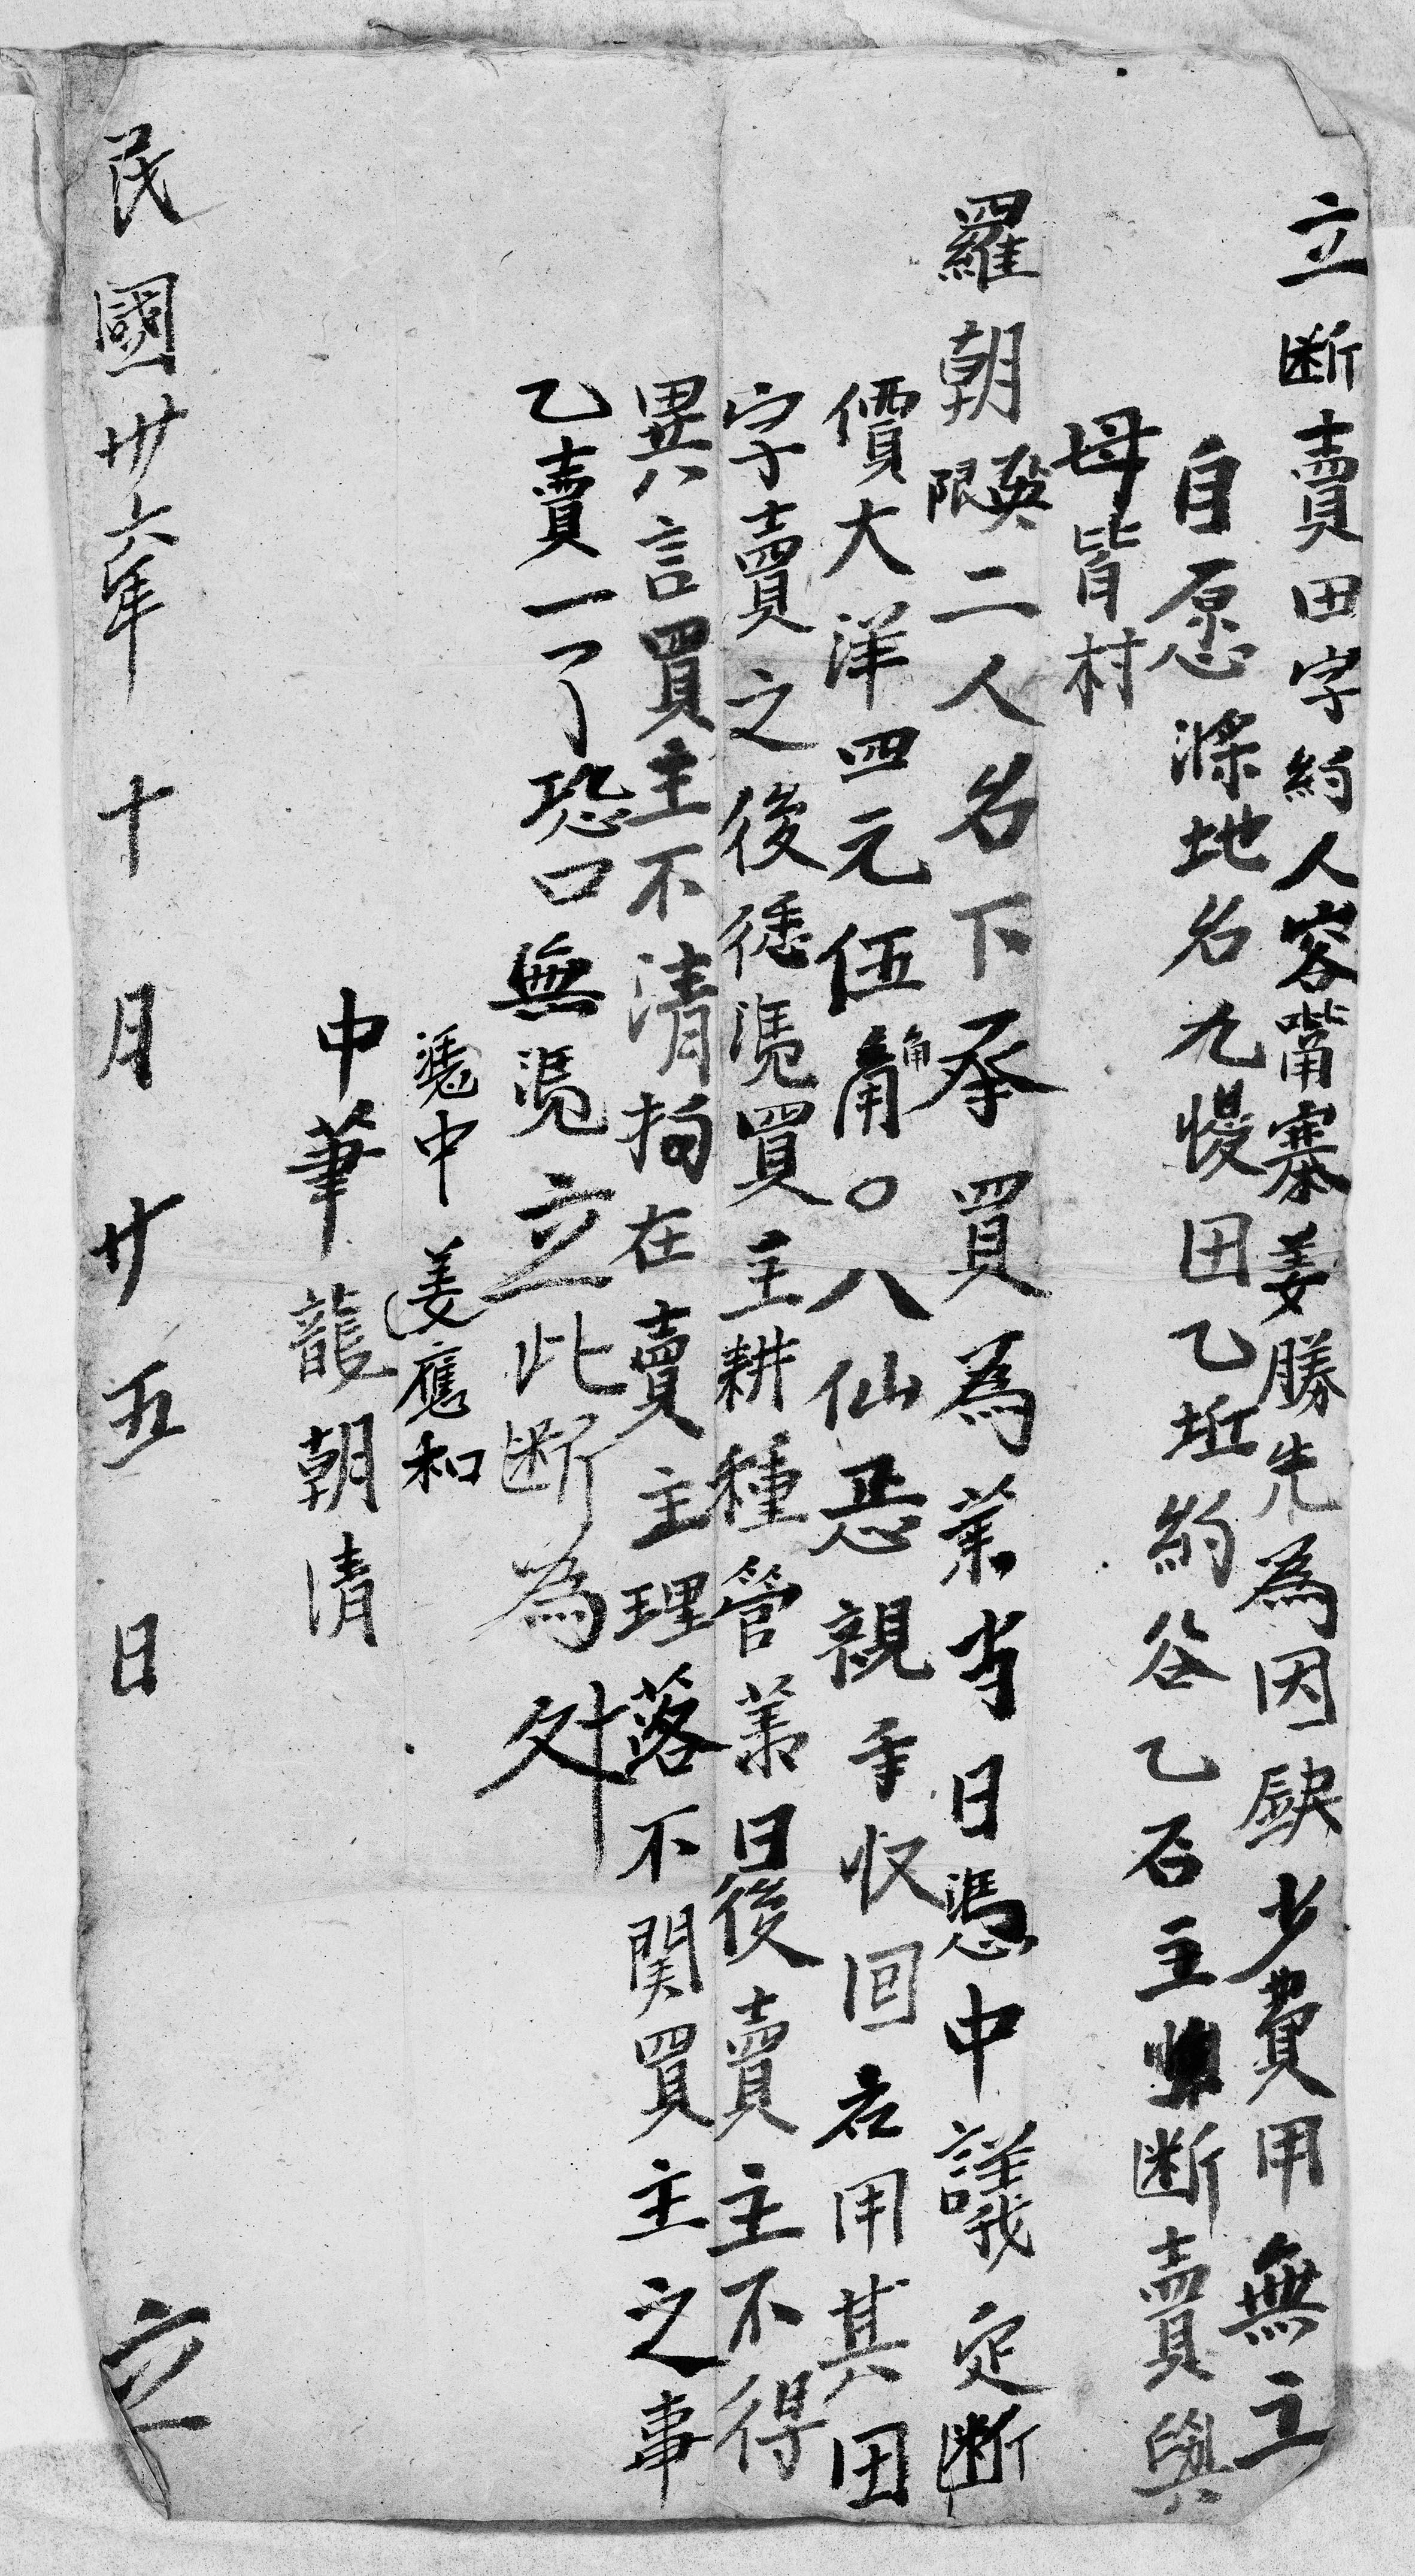 立断賣田字約人容嘴寨姜勝先為因缺少費用無主
自愿漈地名九慢田乙坵約谷乙石主断賣與
母背村
羅朝二人名下承買為業当日憑中議定断
價大洋四元伍角○八仙悉親手收回應用其田
字賣之後憑買主耕種管業日後賣主不得
異言買主不清拘在賣主理落不関買主之事
乙賣一了恐口無憑立此断為
憑中 姜應和
中筆 龍朝清
民國卅六年 十 月 廿 五 日 立